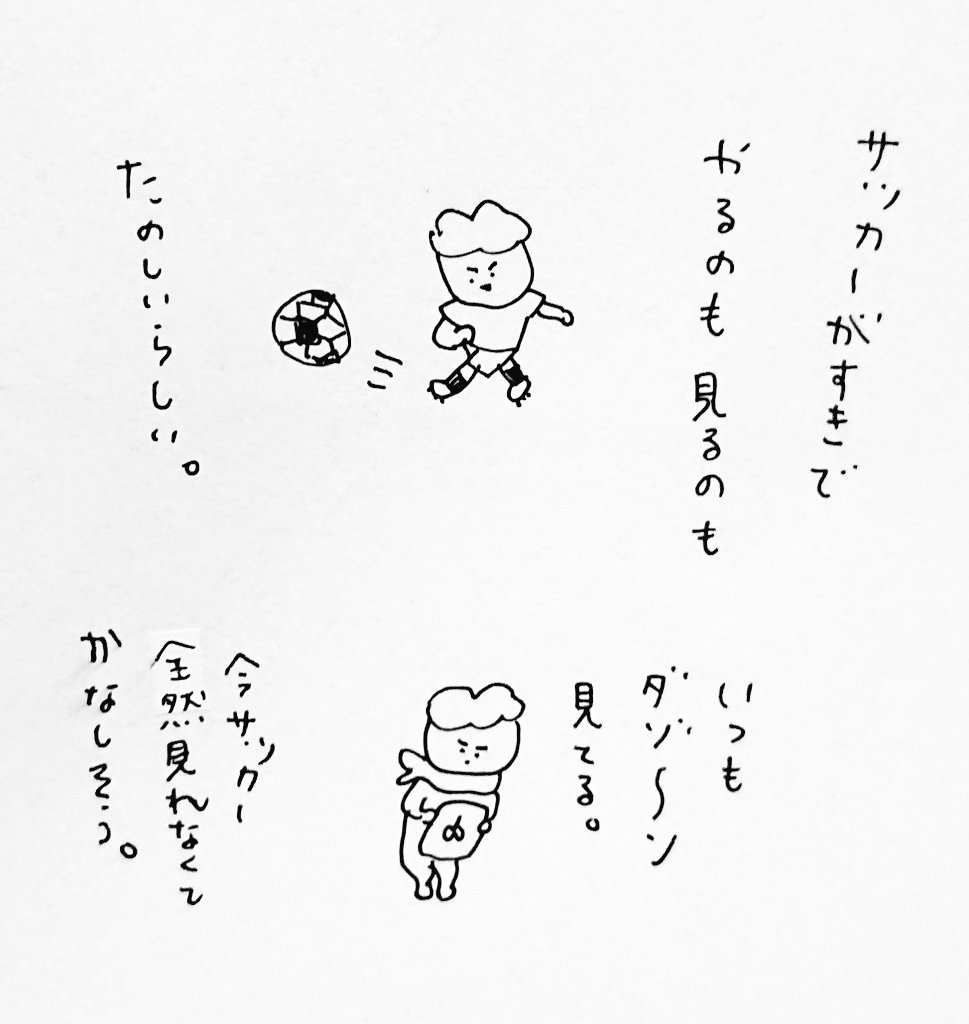 サッカーがすきで
やるのも見るのも
たのしいらしい。
いつも
ダゾ〜ン
見てる。
今サッカー
全然見れなくて
かなしそう。